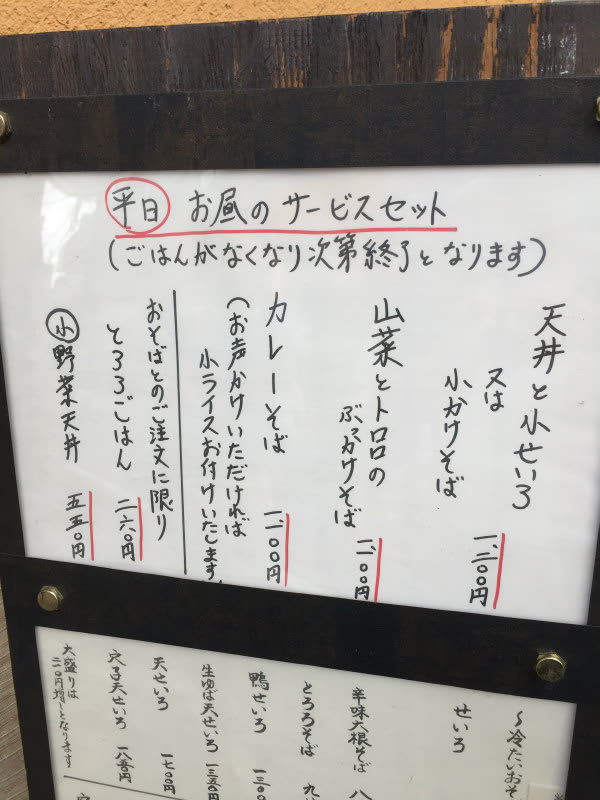 平日 お昼のサービスセット
(ごはんがなくなり次第終了となります)
天丼と小せいろ
又は
小かけそば
一、二〇〇円
山菜とトロロの
ぶっかけそば
カレーそば
(お声かけいただければ
小ライスお付けいたします)
おそばとのご注文に限り
とろろごはん 二六〇円
小野菜天丼 五五〇円
〜冷たいおそ
せいろ
辛味大根そば 八
とろろそば 九
鴨せいろ 一三〇〇
生ゆば天せいろ 一三五〇円
天せいろ 一七〇〇円
穴子天せいろ 一八五〇円
大盛りは
円増しとなります